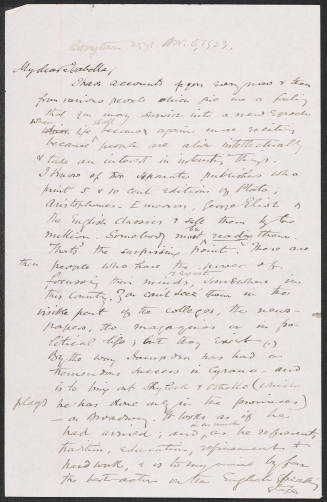 Barrytown N.Y. Nov. 6, 1923.
My dear Isabella,
I have accounts of you every now & then
from various people which give me a feeling
that you may survive into a new epoch
when life shall become again more exciting
because people are alive intellectually
& take an interest in interesting things.
I know of two separate publishers who
print 5 & 10 cent editions of Plato,
Aristophanes - Emerson, George Eliot &
the English classics & sell them by the
million. Somebody must be reading them.
That's the surprising point. There are
then people who have the power of
focussing their minds, somewhere in
this country. You can't see them in the
visible part of the colleges, the news-
papers, the magazines or in po-
litical life; but they exist.
By the way Hampden has had a
tremendous success in Cyrano - and
is to bring out Shylock & Othello (which
plays he has done only in the provinces)
- on Broadway. It looks as if he
had arrived; and, inasmuch as he represents
tradition, education, refinement &
hard work, & is to my mind by far
the best actor on the English speaking
stage